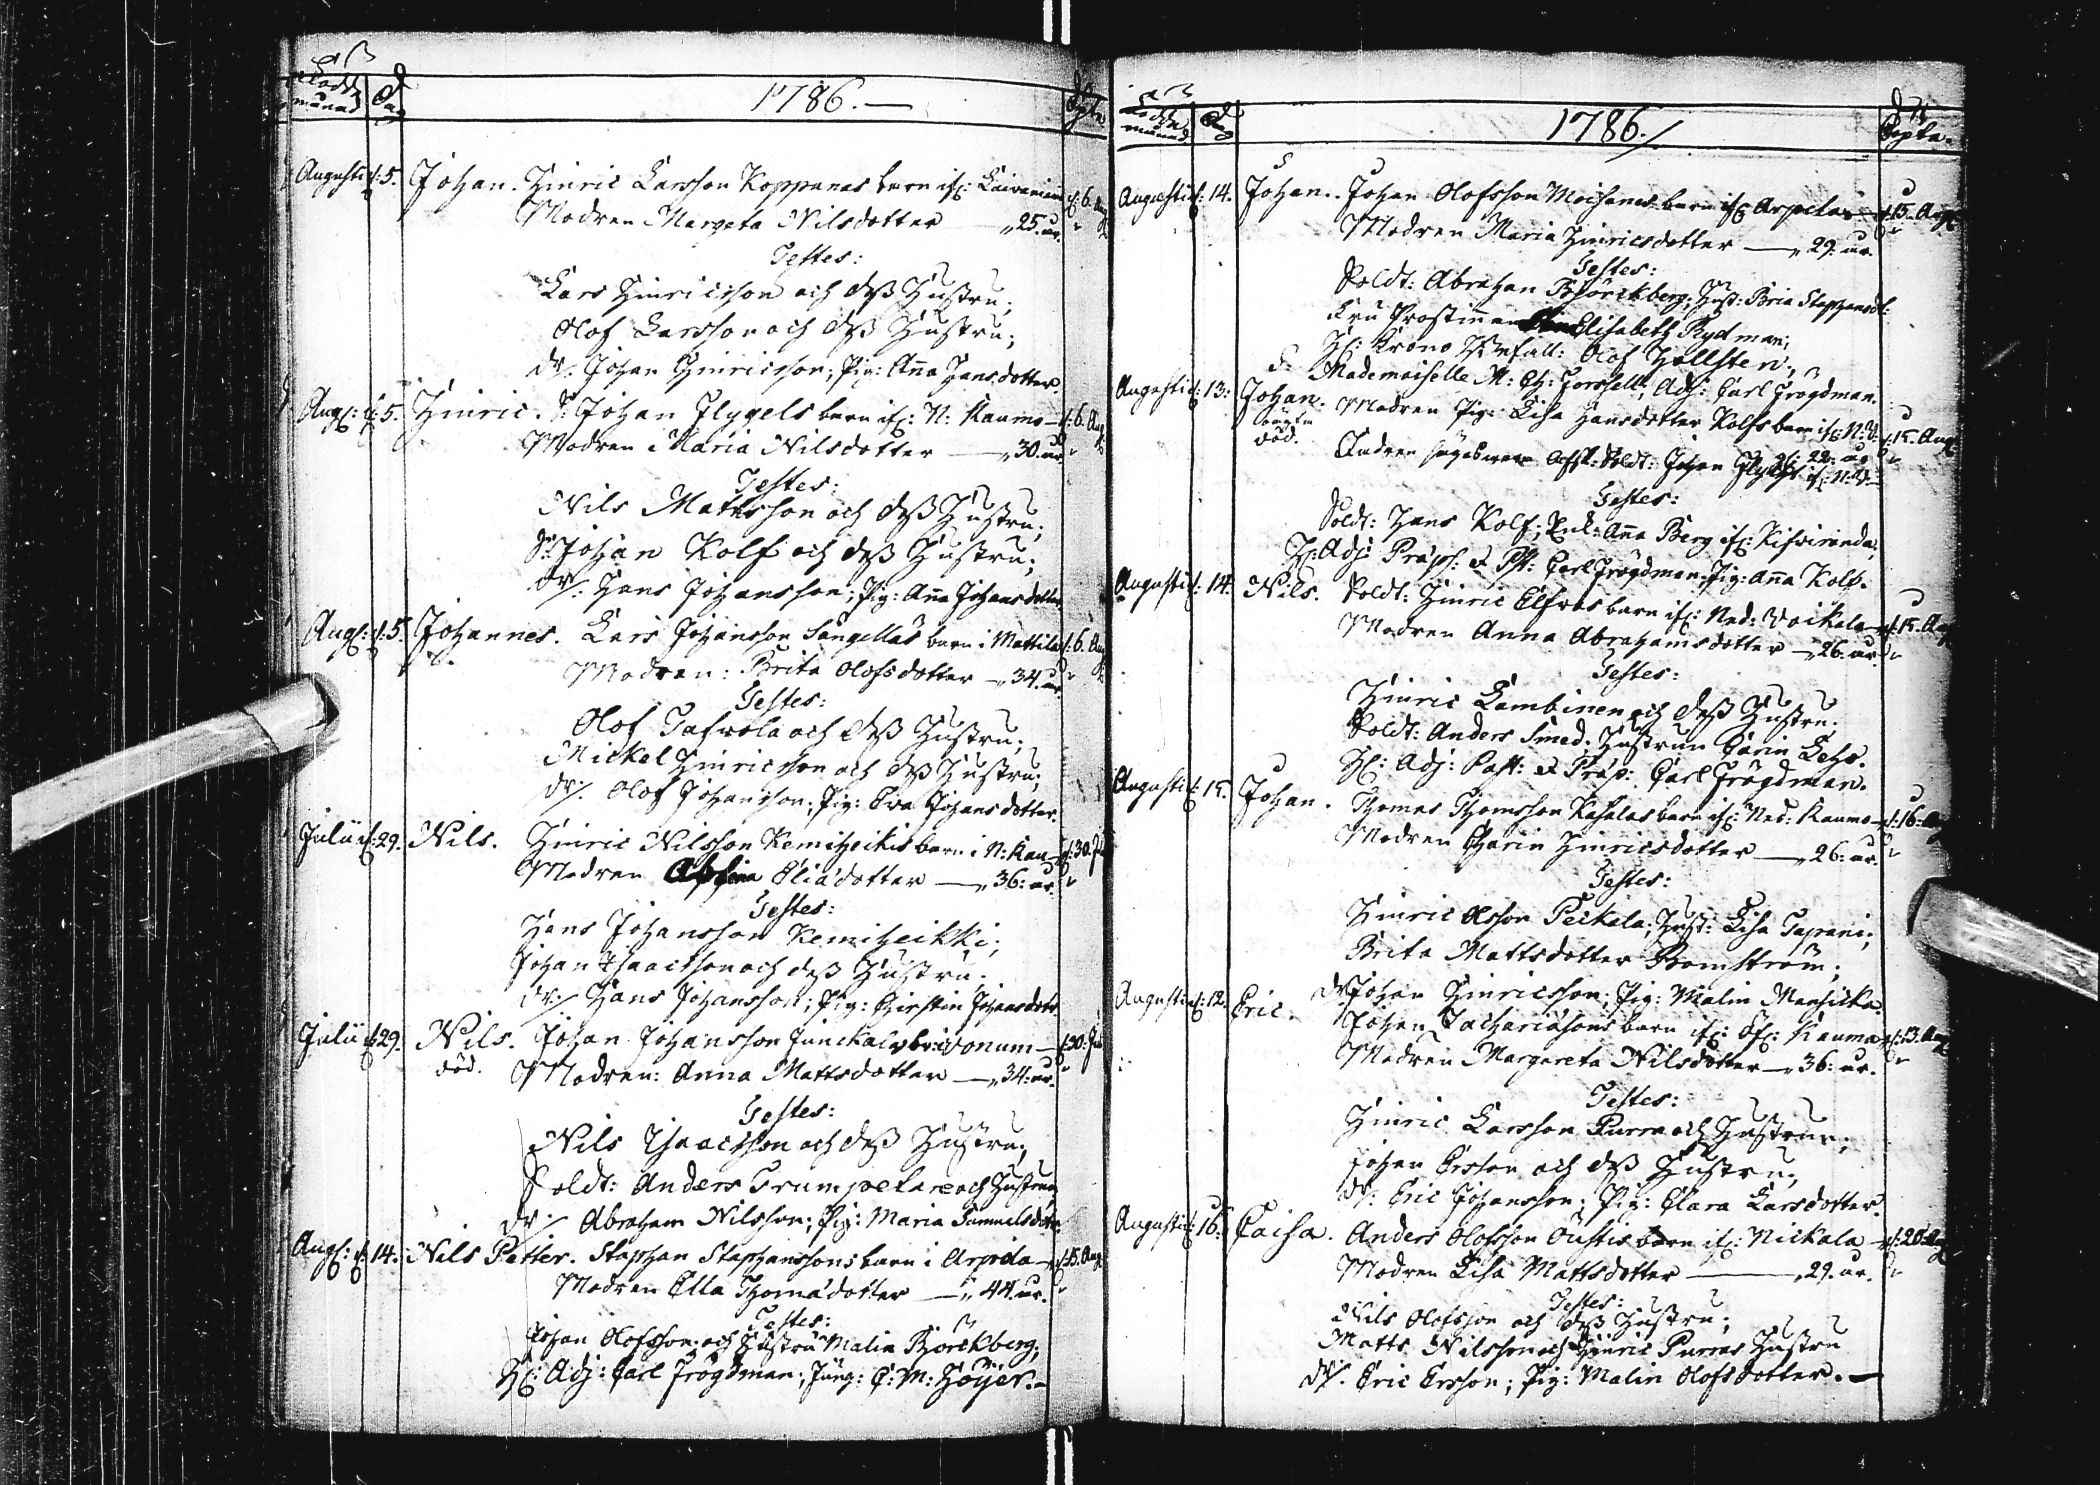 födde månad Dag 1786. — döpte
Augusti d: 5. Johan. Hinric Larsson Koppanas barn if: d: 6. Aug
Modren Margeta Nilsdotter — „ 25. år.
Testes:
Lars Hinricsson och dess Hustru;
Olof Larsson och dess Hustru;
dr. Johan Hinricsson; Pig: Anna Jansdotter
Aug: d: 5. Hinric. S: Johan Flygels barn if: N: Kaumo — d: 6. Aug
Modren Maria Nilsdotter — „ 30. år
Testes:
Nils Matsson och dess Hustru;
S: Johan Kolf och dess Hustru;
dr. Hans Johansson; Pig: Anna Johansdotter
Aug: d: 5. Johannes. Lars Johansson Sangellas barn i Mattila d: 6. Aug
Modren: Brita Olofsdotter — „ 34. år.
Testes:
Olof Tafwola och dess Hustru;
Mickel Hinricsson och dess Hustru;
dr. Olof Johansson; Pig: Eva Johansdotter.
Julii d: 29. Nils. Hinric Nilsson Kemiheikis barn i N: Kau — d: 30. Ju
Modren Eliædotter — „ 36: år.
Testes:
Hans Johansson Kemiheikki;
Johan Isaacsson och dess Hustru;
dr. Hans Johansson; Pig: Chirstin Johansdotr
Julii d: 29. Nils. Johan Johansson Junckala barn i Vonum — d: 30. Ju
död. Modren: Anna Mattsdotter — „ 34: år.
Testes:
Nils Isaacsson och dess Hustru;
Soldt: Anders Trumpetare och Hustrun
dr. Abraham Nilsson; Pig: Maria Samuelsdotr.
Aug: d: 14. Nils Petter. Staphan Staphanssons barn i Arpela — d: 15. Aug
Modren Ella Thomædotter — „ 44. år.
Testes:
Johan Olofsson och Hustru Malin Björckberg;
H: Adj: Carl Frögdman; Jung: C: M: Höijer. —
födde månad Dag 1786. döpte.
Augusti d: 14. Johan. Johan Olofsson Moisanes barn if: Arpela — d: 15. Aug
Modren Maria Hinricsdotter — „ 29. år.
Testes:
Soldt: Abraham Björckberg; Hust: Brita Staphansd:
Fru Prostinnan Elisabeth Rydman;
H: Krono Olof Hällsten;
Mademoiselle M: Forssell; Adj: Carl Frögdman.
Augusti d: 13: Johan. Modren Pig: Lisa Hansdotter Kolfs barn if: N: V: d: 15. Aug
oägta död. „ 22. år
Fadren Afsk: Soldt: Johan Flygel if: N: V:
Testes:
Soldt: Hans Kolf; Enk: Anna Berg if: Kifiranda
H: Adj: Præp: et Past: Carl Frögdman; Pig: Anna Kolf.
Augusti d: 14. Nils. Soldt: Hinric Elfvas barn if: Ned: Voikala — d: 15. Aug
Modren Anna Abrahamsdotter — „ 26. år
Testes:
Hinric Lambinen och dess Hustru;
Soldt: Anders Smed; Hustrun Carin Lehs.
H: Adj: Past: et Præp: Carl Frögdman.
Augusti d: 15. Johan. Thomas Thomsson Kasalas barn if: Ned: Kaumo — d: 16: Aug
Modren Charin Hinricsdotter — „ 26: år.
Testes:
Hinric Olsson Peckala; Hust: Lisa Tapani;
Brita Mattsdotter Bomström;
dr. Johan Hinricsson; Pig: Malin Mansicka.
Augusti d: 12. Eric. Johan Zachariæsons barn if: Öf: Kauma — d: 13. Aug
Modren Margareta Nilsdotter — „ 36: år.
Testes:
Hinric Larsson Purra och Hustrun;
Johan Ersson och dess Hustru;
dr. Eric Johansson; Pig: Clara Larsdotter.
Augusti d: 16: Caisa. Anders Olofsson Oustis barn if: Nickala — d: 20: Aug
Modren Lisa Mattsdotter — „ 29. år.
Testes:
Nils Olofsson och dess Hustru;
Matts Nilsson och Hinric Purras Hustru
dr. Eric Ersson; Pig: Malin Olofsdotter. —